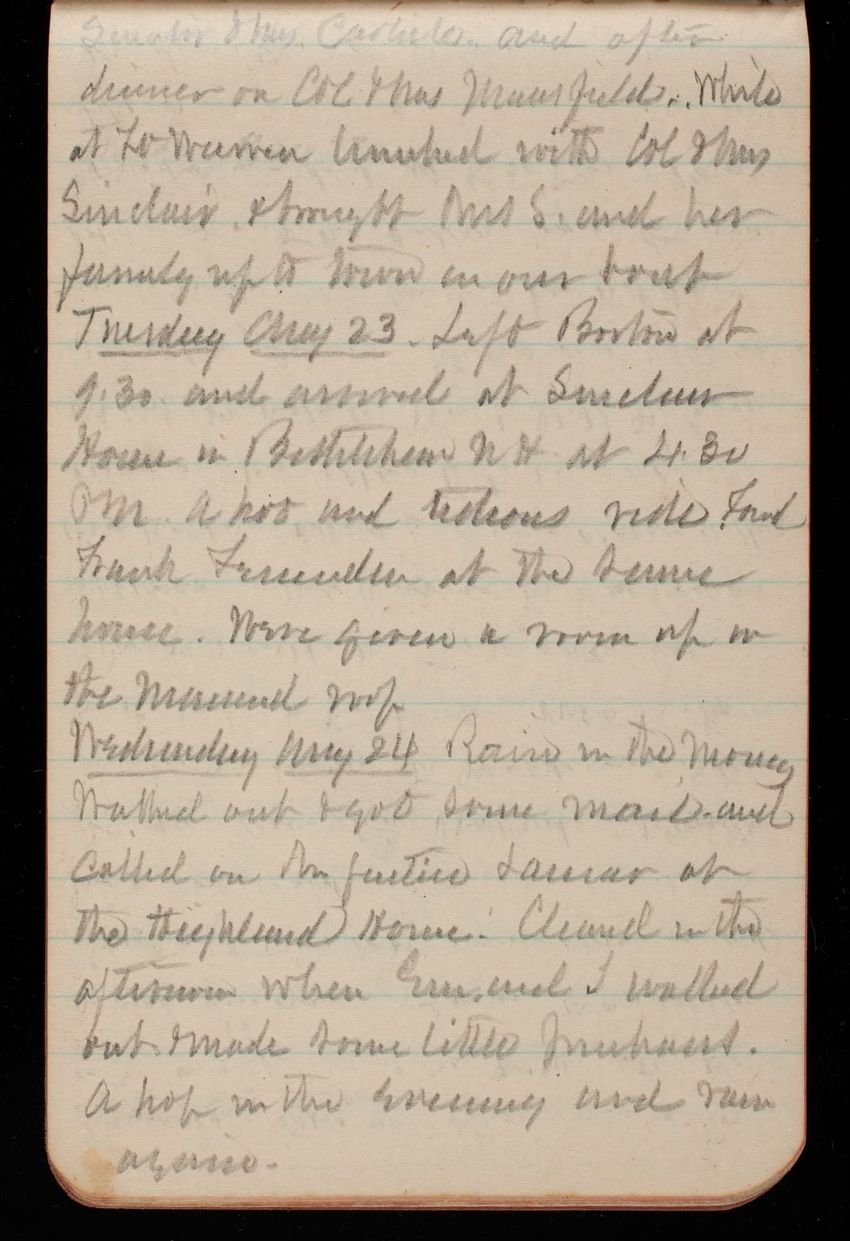 Senator & Mrs. Carlisle. and after
dinner on Col & Mrs Mansfield. While
at Ft Warren lunched with Col & Mrs
Sinclair. & brought Mrs S. and her
family up to town in our boat
Tuesday Aug 23. Left Boston at
9.30 and arrived at Sinclair
House in Bethlehem N H at 4.30
PM. A hot and tedious ride. Found
Frank Fessenden at the same
house. Were given a room up in
the Mansard roof
Wednesday Aug 24 Rain in the morng
Walked out & got some mail and
called on Mr Justice Lamar at
the Highland House. Cleared in the
afternoon when Em. and I walked
out & made some little purchases.
A hop in the evening and rain
again.